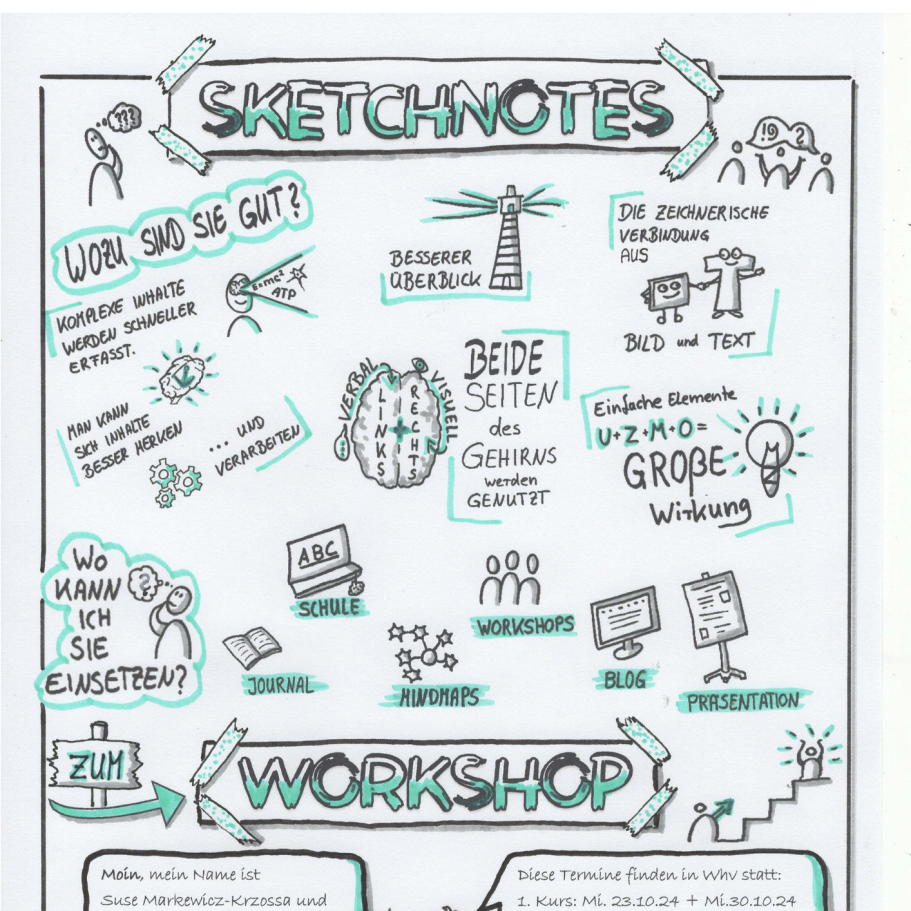 SKETCHNOTES
???
!?
?
WOZU SIND SIE GUT?
KOMPLEXE INHALTE
WERDEN SCHNELLER
ERFASST.
E=mc²
ATP
MAN KANN
SICH INHALTE
BESSER MERKEN
... UND
VERARBEITEN
BESSERER
ÜBERBLICK
DIE ZEICHNERISCHE
VERBINDUNG
AUS
BILD und TEXT
VERBAL
LINKS
RECHTS
VISUELL
BEIDE
SEITEN
des
GEHIRNS
werden
GENUTZT
Einfache Elemente
U+Z+M+O=
GROßE
Wirkung
WO
KANN
ICH
SIE
EINSETZEN?
?
ABC
SCHULE
JOURNAL
MINDMAPS
WORKSHOPS
BLOG
PRÄSENTATION
ZUM
WORKSHOP
Moin, mein Name ist
Suse Markewicz-Krzossa und
Diese Termine finden in Whv statt:
1. Kurs: Mi. 23.10.24 + Mi.30.10.24